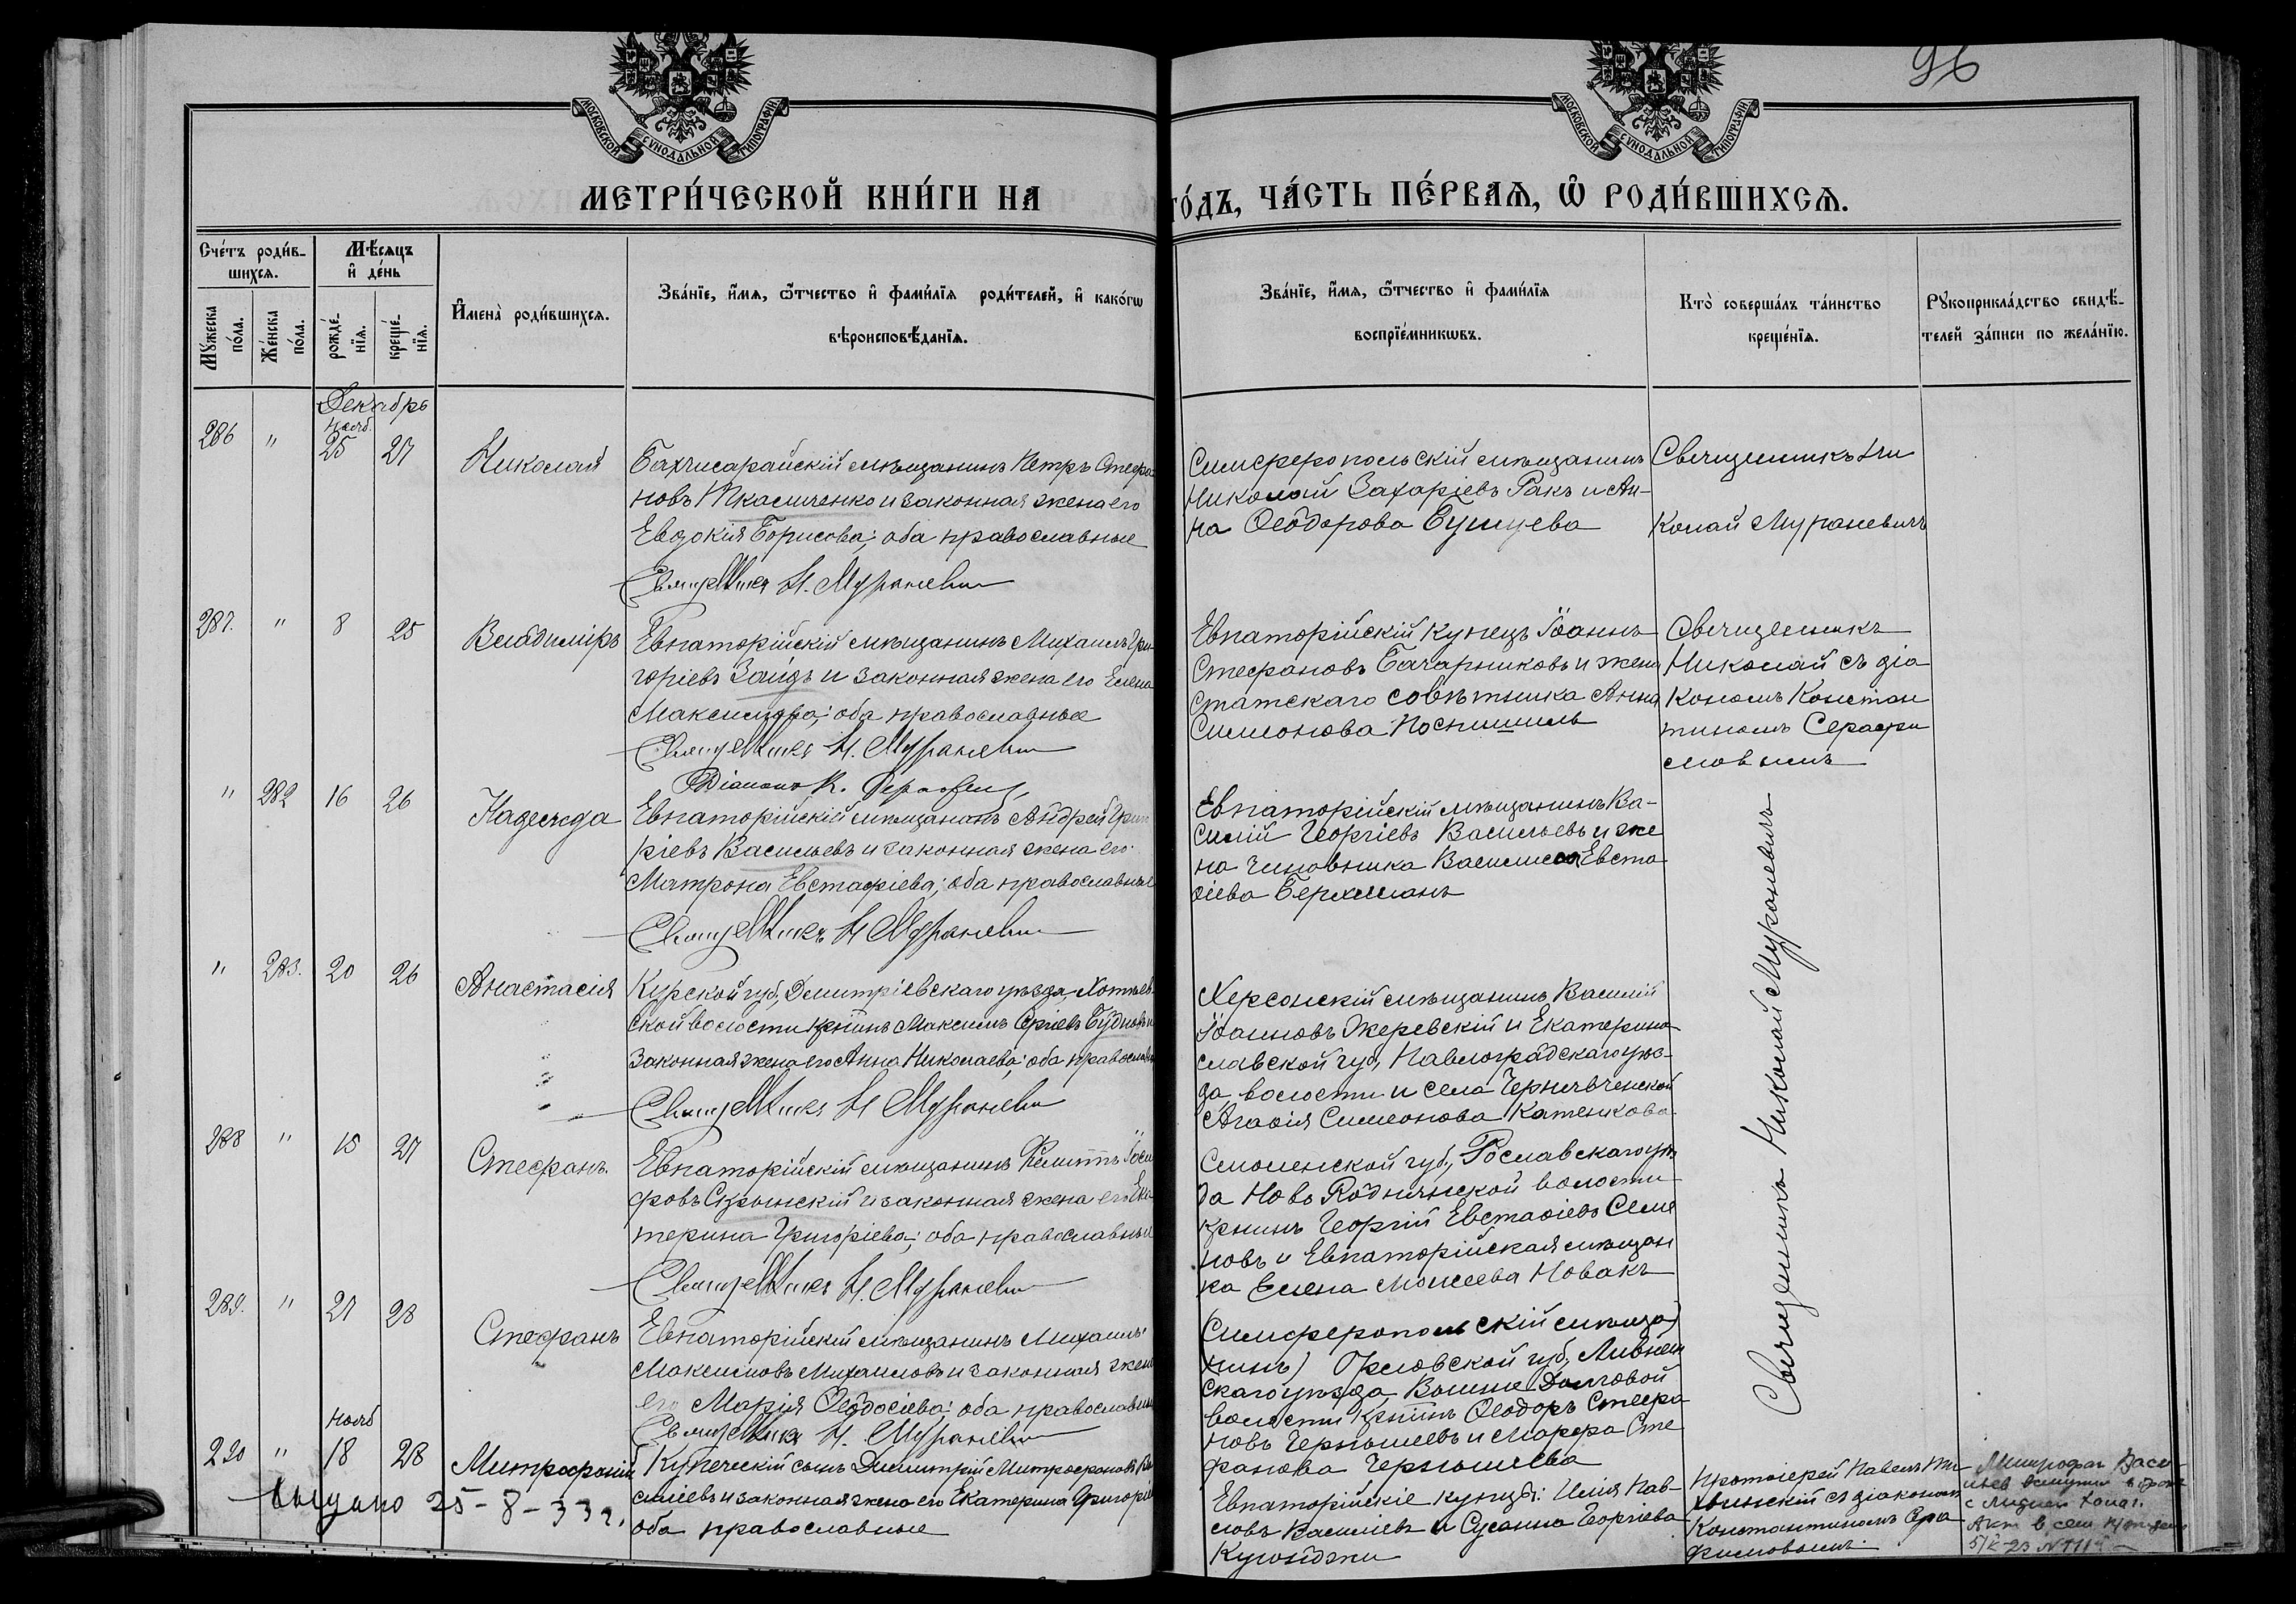 96
МОСКОВСКОЙ СѴНОДАЛЬНОЙ ТИПОГРАФІИ
МОСКОВСКОЙ СѴНОДАЛЬНОЙ ТИПОГРАФІИ
МЕТРИ́ЧЕСКОЙ КНИ́ГИ НА
ГО́ДЪ, ЧА́СТЬ ПЕ́РВАѦ, Ѽ РОДИ́ВШИХСѦ.
Сче́тъ роди́в-
шихсѧ.
Мꙋ́жеска
по́ла.
Же́нска
по́ла.
Мѣ́сѧцъ
и҆ де́нь
рожде́-
нїѧ.
креще́-
нїѧ.
И҆мена̀ роди́вшихсѧ.
Зва́нїе, и҆́мѧ, ѻ҆́тчество и҆ фами́лїѧ роди́телей, и҆ како́гѡ
вѣроисповѣ́данїѧ.
Зва́нїе, и҆́мѧ, ѻ҆́тчество и҆ фами́лїѧ
воспрїе́мникѡвъ.
Кто̀ соверша́лъ та́инство
креще́нїѧ.
Рꙋкоприкла́дство свидѣ́-
телей за́писи по жела́нїю.
Декабрь
Нояб.
286 " 25 27 Николай
Бахчисарайскій мѣщанинъ Петръ Стефа-
новъ Ткасиченко и законная жена его
Евдокія Борисова; оба православные
Священникъ Н. Мураневич
Симферопольскій мѣщанинъ
Николай Захаріевъ Ракъ и Ан-
на Ѳеодорова
Священникъ Ни
колай Мураневичъ
287. " 8 25 Владиміръ
Евпаторійскій мѣщанинъ Михаилъ Гри-
горіевъ Заидъ и законная жена его Елена
Максимова; оба православные
Священникъ Н. Мураневич
Діаконъ К.
Евпаторійскій купецъ Іоаннъ
Стефановъ Бачарниковъ и жена
Статскаго совѣтника Анна
Симеонова Поспишиль
Священникъ
Николай съ діа
кономъ Констан
тиномъ Серафи
мовымъ
" 282 16 26 Надежда
Евпаторійскій мѣщанинъ Андрей
ріевъ Васильевъ и законная жена его
Матрона Евстафіева; оба православные
Священникъ Н Мураневич
Евпаторійскій мѣщанинъ Ва-
силій Георгіевъ Васильевъ и же
на чиновника Василиса Евста
ѳіева Берхманъ
" 283. 20 26 Анастасія
Курской губ., Димитріевскаго уѣзда,
ской волости кр̃нинъ Максимъ и
законная жена его Анна Николаева; оба православн
Священникъ Н Мураневич
Херсонскій мѣщанинъ Василій
Іоанновъ Жеревскій и Екатерино-
славской губ., Павлоградскаго уѣз-
да, волости и села
Агафія Симеонова Катенкова
288 " 15 27 Стефанъ
Евпаторійскій мѣщанинъ Іоси
фовъ Скрынскій и законная жена его Ека
терина Григоріева; оба православные
Священникъ Н. Мураневич
Смоленской губ., Рославскаго уѣз
да Ново Роднянской волости
кр̃нинъ Георгій Евстаѳіевъ Семе
новъ и Евпаторійская мѣщан
ка Елена Моисеева Новакъ
289. " 21 28 Стефанъ
Евпаторійскій мѣщанинъ Михаилъ
Максимовъ Михаиловъ и законная жена
его Марія Ѳеодосіева; оба православные
Священникъ Н. Мураневич
(Симферопольскій мѣща)
нинъ) Орловской губ., Ливнен
скаго уѣзда, Долговой
волости кр̃нинъ Ѳеодоръ Стефа
новъ Чернышевъ и Марфа Сте
фанова Чернышева
Священникъ Николай Мураневичъ
Нояб
290 " 18 28 Митрофаній
Купеческій сынъ Димитрій Митрофановъ Ва
силіевъ и законная жена его Екатерина Григоріева
оба православные
Евпаторійскіе купцы: Илія Пав-
ловъ Василіевъ и Сусанна Георгіева
Куюнджи
Протоіерей Павелъ
съ діакономъ
Константиномъ Сера
фимовымъ.
Митрофан Васи
льев вступил в брак
с Лидией
Выдано 25-8-33г.